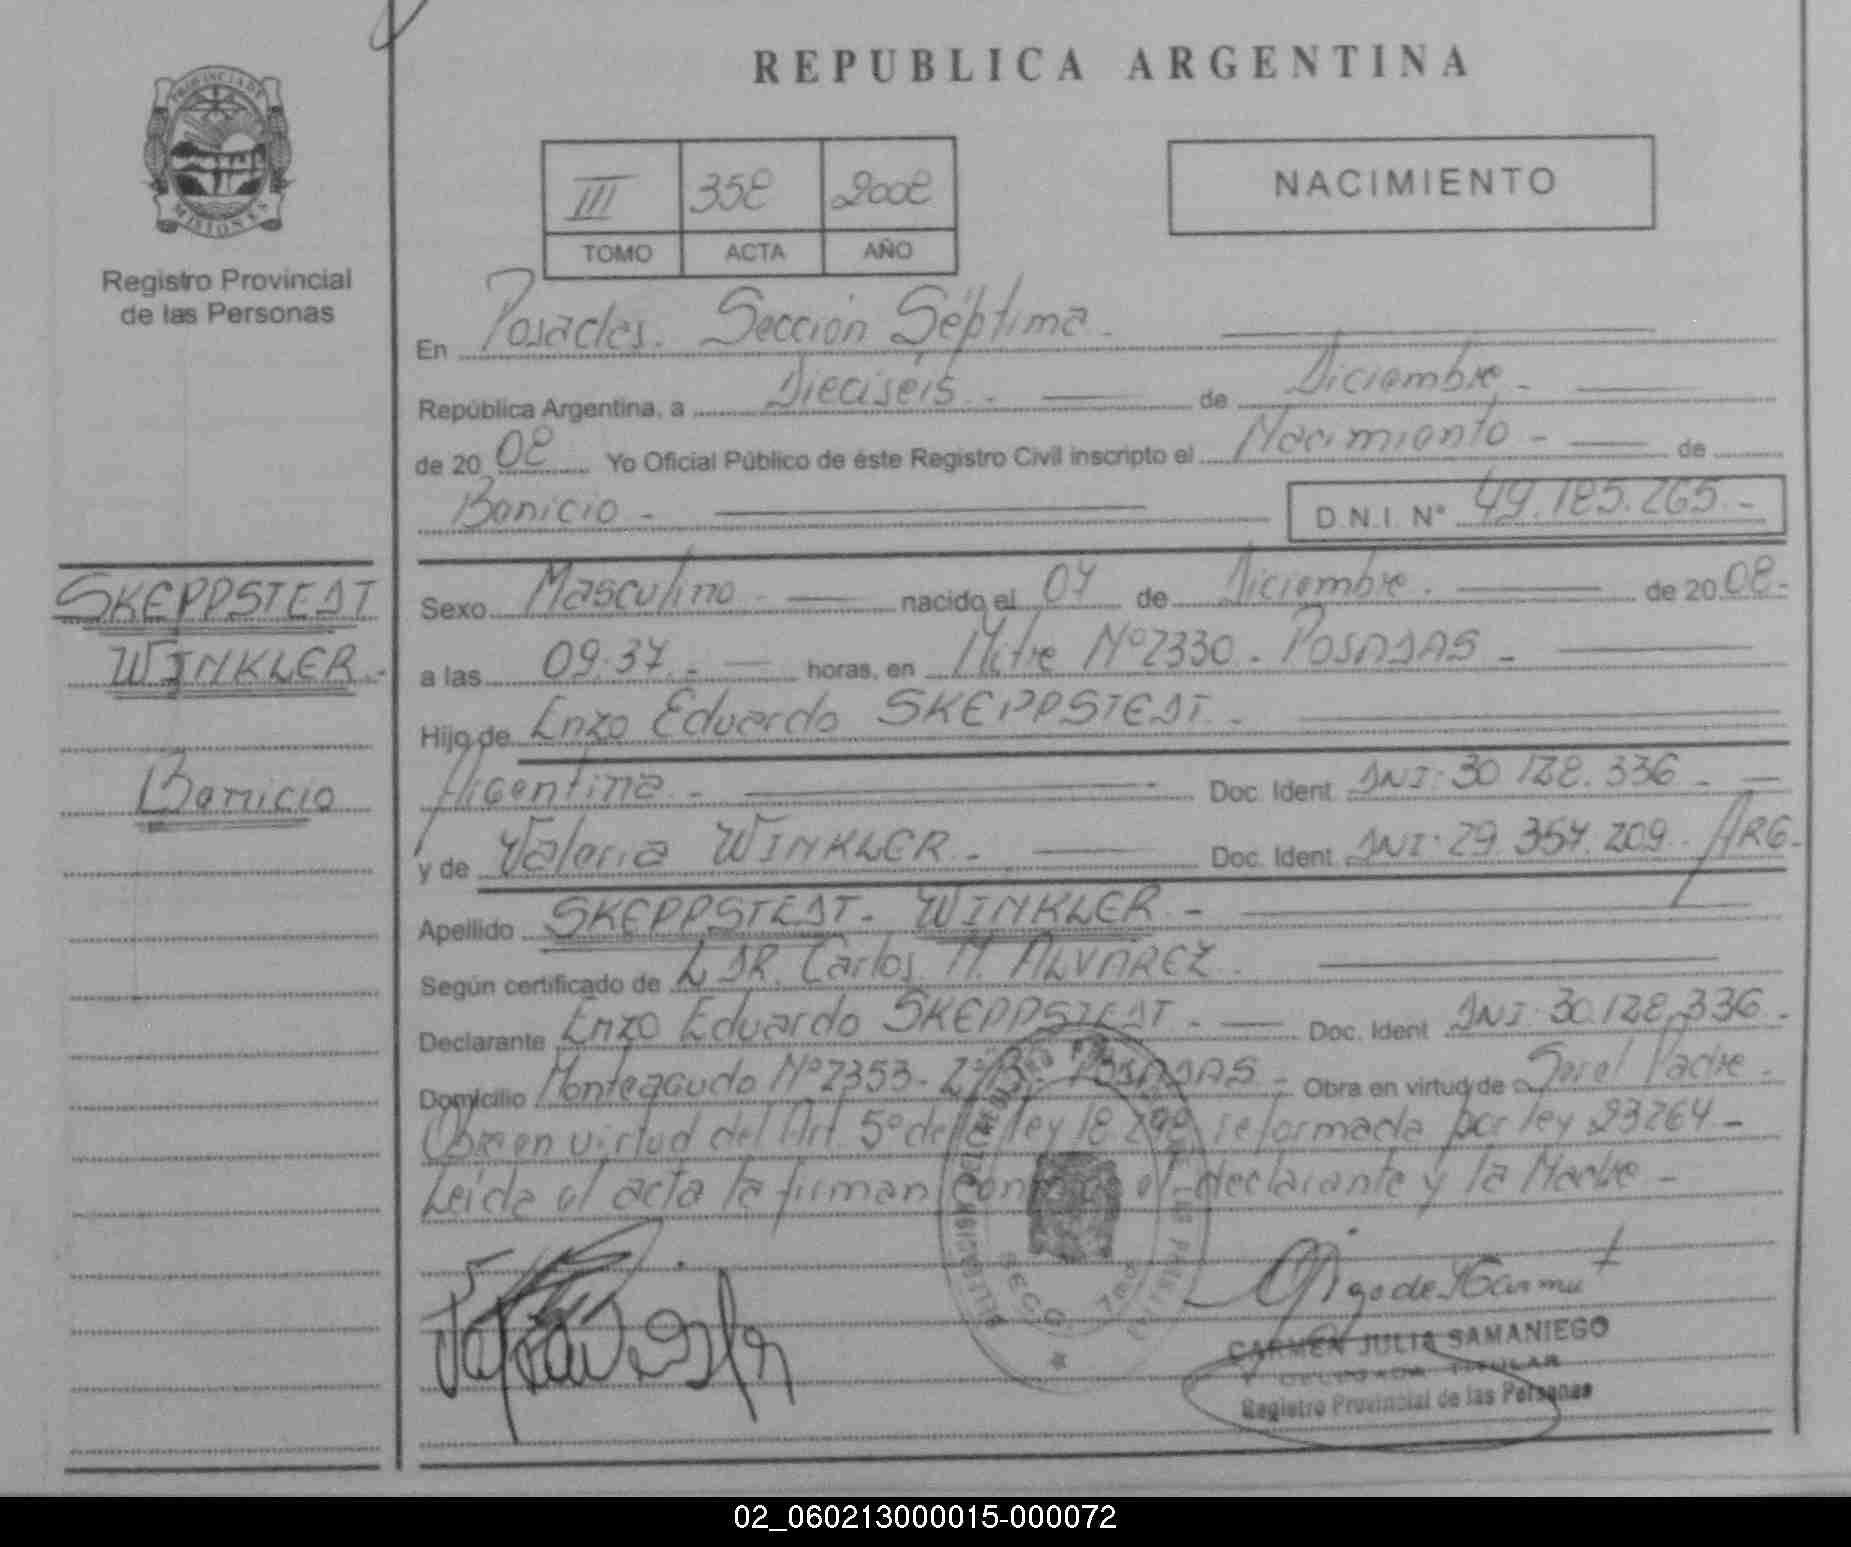 REPUBLICA ARGENTINA
PROVINCIA DE
MISIONES
Registro Provincial
de las Personas
III 358 2008
TOMO ACTA AÑO
NACIMIENTO
En Posadas. Sección Séptima.
República Argentina, a Dieciséis. de Diciembre.
de 20 08 Yo Oficial Público de éste Registro Civil inscripto el Nacimiento - de
Benicio - D.N.I. Nº 49.185.265.-
SKEPPSTEDT
WINKLER.-
Benicio
Sexo Masculino - nacido el 04 de Diciembre. de 20 08.-
a las 09.37.- horas, en Mitre Nº 2330. POSADAS -
Hijo de Enzo Eduardo SKEPPSTEDT.-
Argentina.- Doc. Ident DNI. 30.128.336 -
y de Valeria WINKLER.- Doc. Ident DNI. 29.357.209.- ARG.-
Apellido SKEPPSTEDT. WINKLER.-
Según certificado de DR. Carlos M. ALVAREZ.
Declarante Enzo Eduardo SKEPPSTEDT.- Doc. Ident DNI. 30.128.336.-
Domicilio Monteagudo Nº 2353. POSADAS - Obra en virtud de Ser el Padre.-
Obra en virtud del Art. 5º de la ley 18.248 reformada por ley 23264.-
Leída el acta la firman el declarante y la Madre.-
CARMEN JULIA SAMANIEGO
DELEGADA TITULAR
Registro Provincial de las Personas
02_060213000015-000072